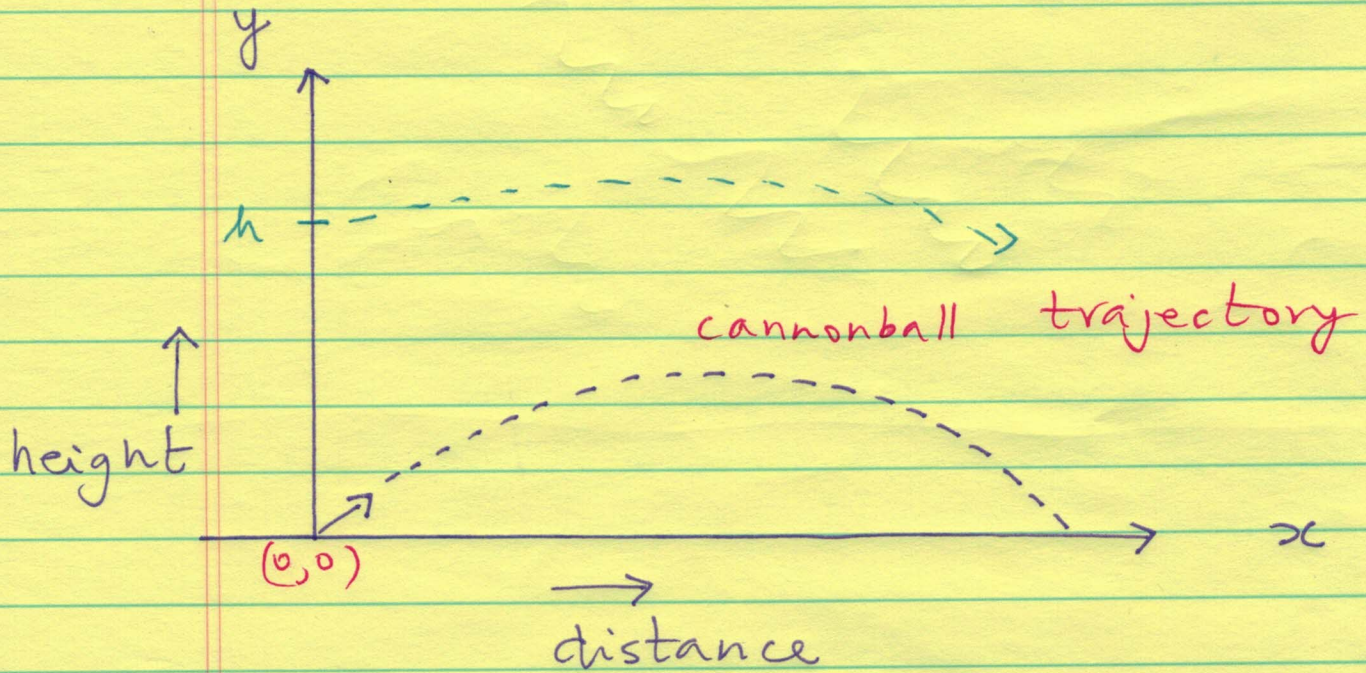 y
h
cannonball trajectory
height
x
(0,0)
distance